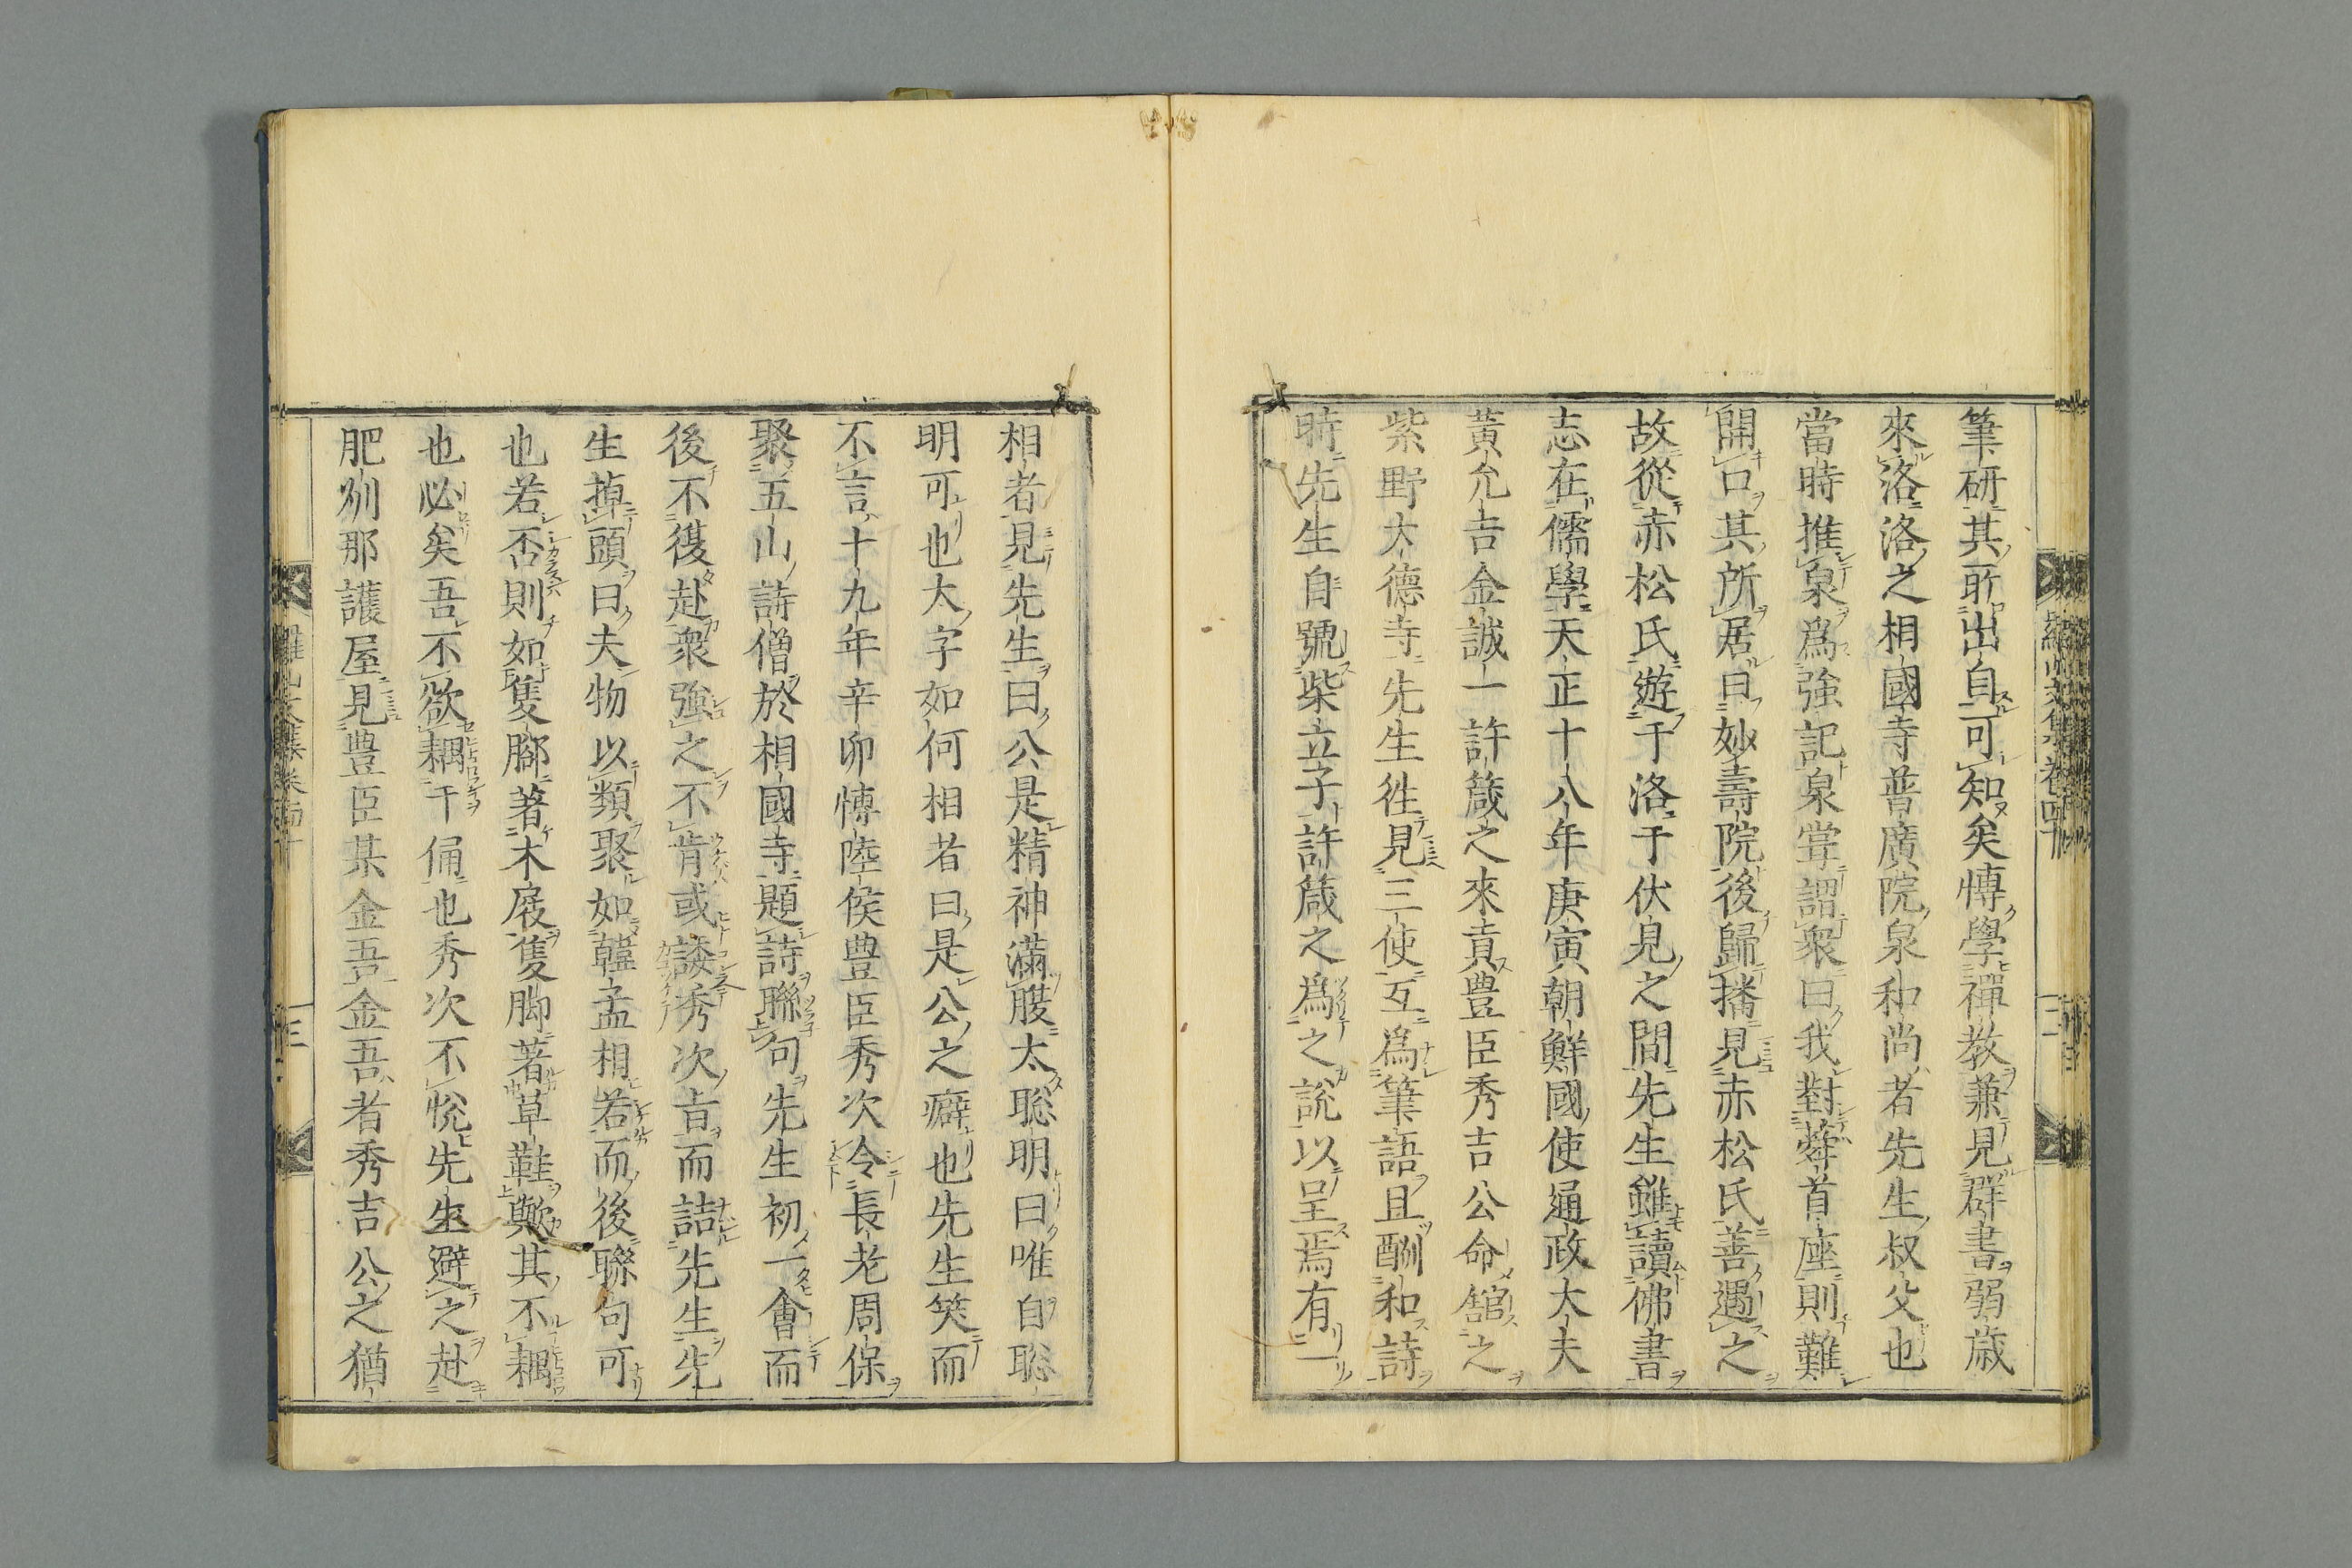 筆研其所出自可知矣博學禪教兼見群書弱歳
來洛洛之相國寺普廣院泉和尚者先生叔父也
當時推泉爲強記泉嘗謂衆曰我對蕣首座則難
開口其所居曰妙壽院後歸播見赤松氏善遇之
故從赤松氏遊于洛于伏見之間先生雖讀佛書
志在儒學天正十八年庚寅朝鮮國使通政太夫
黃允吉金誠一許箴之來貢豊臣秀吉公命館之
紫野大德寺先生徃見三使互爲筆語且酬和詩
時先生自號柴立子許箴之爲之說以呈焉有一
相者見先生曰公是精神滿腹太聡明曰唯自聡
明可也大字如何相者曰是公之癖也先生笑而
不言十九年辛卯博陸侯豊臣秀次令長老周保
聚五山詩僧於相國寺題詩聯句先生初一會而
後不復赴衆強之不肯或諉秀次旨而詰先生先
生掉頭曰夫物以類聚如韓孟相若而後聯句可
也若否則如隻脚著木屐隻脚著草鞋歟其不耦
也必矣吾不欲耦干俑也秀次不悅先生避之赴
肥刕那護屋見豊臣某金吾金吾者秀吉公之猶